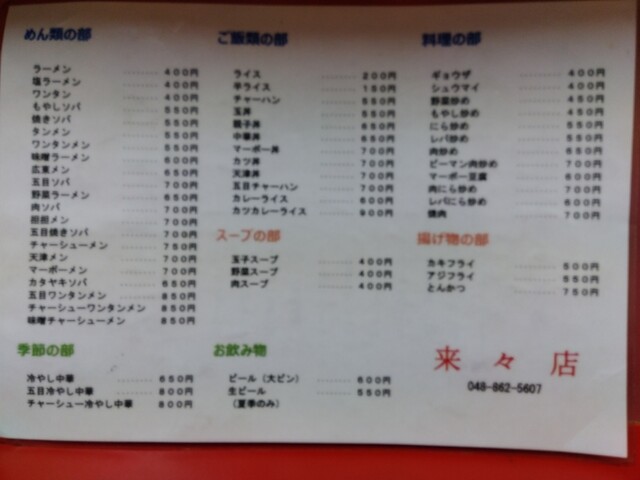 めん類の部
ラーメン ……… 400円
塩ラーメン ……… 400円
ワンタン ……… 400円
もやしソバ ……… 550円
焼きソバ ……… 550円
タンメン ……… 550円
ワンタンメン ……… 550円
味噌ラーメン ……… 600円
広東メン ……… 650円
五目ソバ ……… 700円
野菜ラーメン ……… 650円
肉ソバ ……… 700円
担担メン ……… 700円
五目焼きソバ ……… 700円
チャーシューメン ……… 750円
天津メン ……… 700円
マーボーメン ……… 700円
カタヤキソバ ……… 650円
五目ワンタンメン ……… 850円
チャーシューワンタンメン …… 850円
味噌チャーシューメン ……… 850円
季節の部
冷やし中華 ……… 650円
五目冷やし中華 ……… 800円
チャーシュー冷やし中華 ……… 800円
ご飯類の部
ライス ……… 200円
半ライス ……… 150円
チャーハン ……… 550円
玉丼 ……… 550円
親子丼 ……… 650円
中華丼 ……… 650円
マーボー丼 ……… 700円
カツ丼 ……… 700円
天津丼 ……… 700円
五目チャーハン ……… 700円
カレーライス ……… 600円
カツカレーライス ……… 900円
スープの部
玉子スープ ……… 400円
野菜スープ ……… 400円
肉スープ ……… 400円
お飲み物
ビール(大ビン) ……… 600円
生ビール ……… 550円
(夏季のみ)
料理の部
ギョウザ ……… 400円
シュウマイ ……… 400円
野菜炒め ……… 450円
もやし炒め ……… 450円
にら炒め ……… 550円
レバ炒め ……… 550円
肉炒め ……… 650円
ピーマン肉炒め ……… 700円
マーボー豆腐 ……… 600円
肉にら炒め ……… 700円
レバにら炒め ……… 600円
焼肉 ……… 700円
揚げ物の部
カキフライ ……… 500円
アジフライ ……… 550円
とんかつ ……… 750円
来々店
048-862-5607